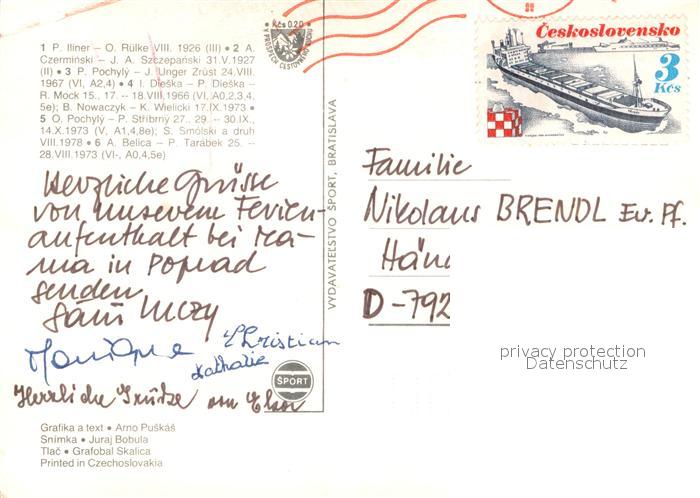 1 P. Illner – O. Rülke VIII. 1926 (III) ● 2 A.
Czermiński – J. A. Szczepański 31.V.1927
(II) ● 3 P. Pochylý – J. Unger Zrúst 24.VIII.
1967 (VI, A2,4) ● 4 I. Dieška – P. Dieška –
R. Mock 15.. 17. -- 18.VIII.1966 (VI, A0,2,3,4,
5e); B. Nowaczyk – K. Wielicki 17.IX.1973 ●
5 O. Pochylý – P. Stribrný 27.. 29. – 30.IX.,
14.X.1973 (V, A1,4,8e); S. Smólski a druh
VIII.1978 ● 6 A. Belica – P. Tarábek 25. --
28.VIII.1973 (VI-, A0,4,5e)
Kčs 0.20
Herzliche Grüsse
von unserem Ferien-
aufenthalt bei Ma-
ma in Poprad
senden
Monique Christian
Nathalie
Herzliche Grüße von
ŠPORT
Grafika a text ● Arno Puškáš
Snímka ● Juraj Bobula
Tlač ● Grafobal Skalica
Printed in Czechoslovakia
VYDAVATEĽSTVO ŠPORT, BRATISLAVA
Československo
3
Kčs
Familie
Nikolaus BRENDL Ev. Pf.
Hän
D-792
privacy protection
Datenschutz